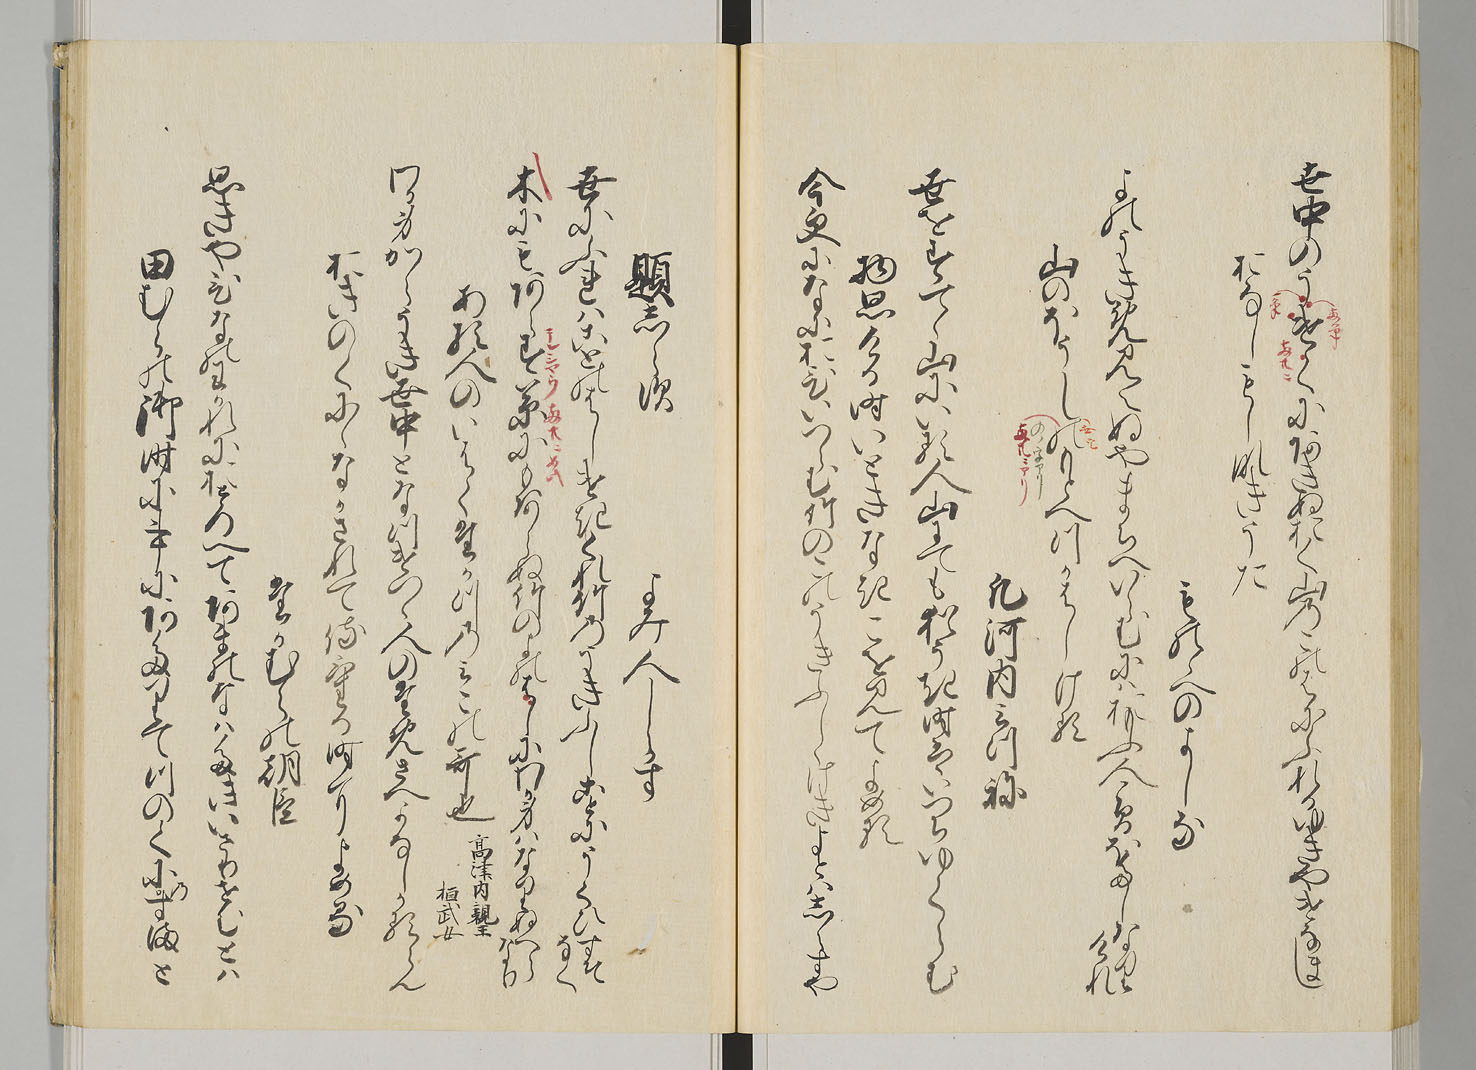 世中のうけくにあきぬおく山のこのはにふれるゆきやけなまし
おなしもしなきうた
もののへのよしな
よのうきめ見えぬやまちへいらむにはおもふ人こそほたしなりけれ
山のほうしのもとへつかはしける
凡河内みつね
世をすてて山にいる人山にても猶うき時はいつちゆくらむ
物思ける時いときなきこを見てよめる
今更になにおひいつらむ竹のこのうきふしけきよとはしらすや
題しらす
よみ人しらす
世にふれはことのはしけきくれ竹のうきふしことにうくひすそなく
木にもあらす草にもあらぬ竹のよのはしにわか身はなりぬへらなり
ある人のいはくたかつのみこの哥也
高津内親王
桓武女
わか身からうき世中となつけつつ人のためさへかなしかるらん
おきのくにになかされて侍ける時によめる
たかむらの朝臣
思きやひなのわかれにおとろへてあまのなはたきいさりせむとは
田むらの御時に事にあたりてつのくにのすまと